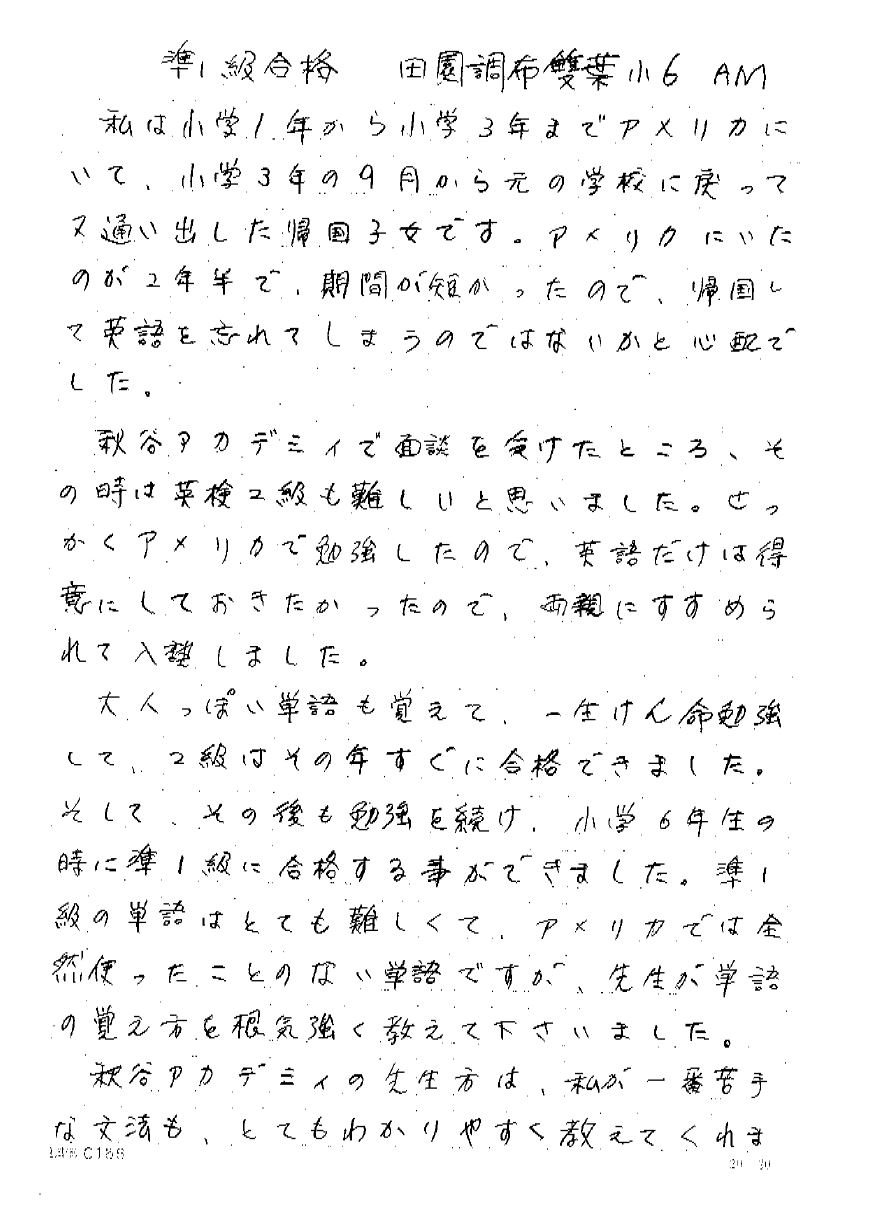 準1級合格　田園調布雙葉小6 AM
私は小学1年から小学3年までアメリカに
いて、小学3年の9月から元の学校に戻って
又通い出した帰国子女です。アメリカにいた
のが2年半で、期間が短かったので、帰国し
て英語を忘れてしまうのではないかと心配で
した。
秋谷アカデミィで面談を受けたところ、そ
の時は英検2級も難しいと思いました。せっ
かくアメリカで勉強したので、英語だけは得
意にしておきたかったので、両親にすすめら
れて入塾しました。
大人っぽい単語も覚えて、一生けん命勉強
して、2級はその年すぐに合格できました。
そして、その後も勉強を続け、小学6年生の
時に準1級に合格する事ができました。準1
級の単語はとても難しくて、アメリカでは全
然使ったことのない単語ですが、先生が単語
の覚え方を根気強く教えて下さいました。
秋谷アカデミィの先生方は、私が一番苦手
な文法も、とてもわかりやすく教えてくれま
C158
20 20